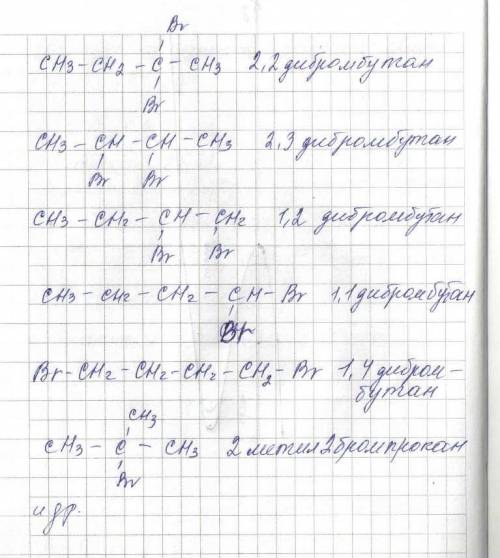 Br
CH3-CH2-C-CH3 2,2 дибромбутан
Br
CH3-CH-CH-CH3 2,3 дибромбутан
Br Br
CH3-CH2-CH-CH2 1,2 дибромбутан
Br Br
CH3-CH2-CH2-CH-Br 1,1 дибромбутан
Br
Br-CH2-CH2-CH2-CH2-Br 1,4 дибром-
бутан
CH3
CH3-C-CH3 2 метил 2бромпропан
Br
и др.